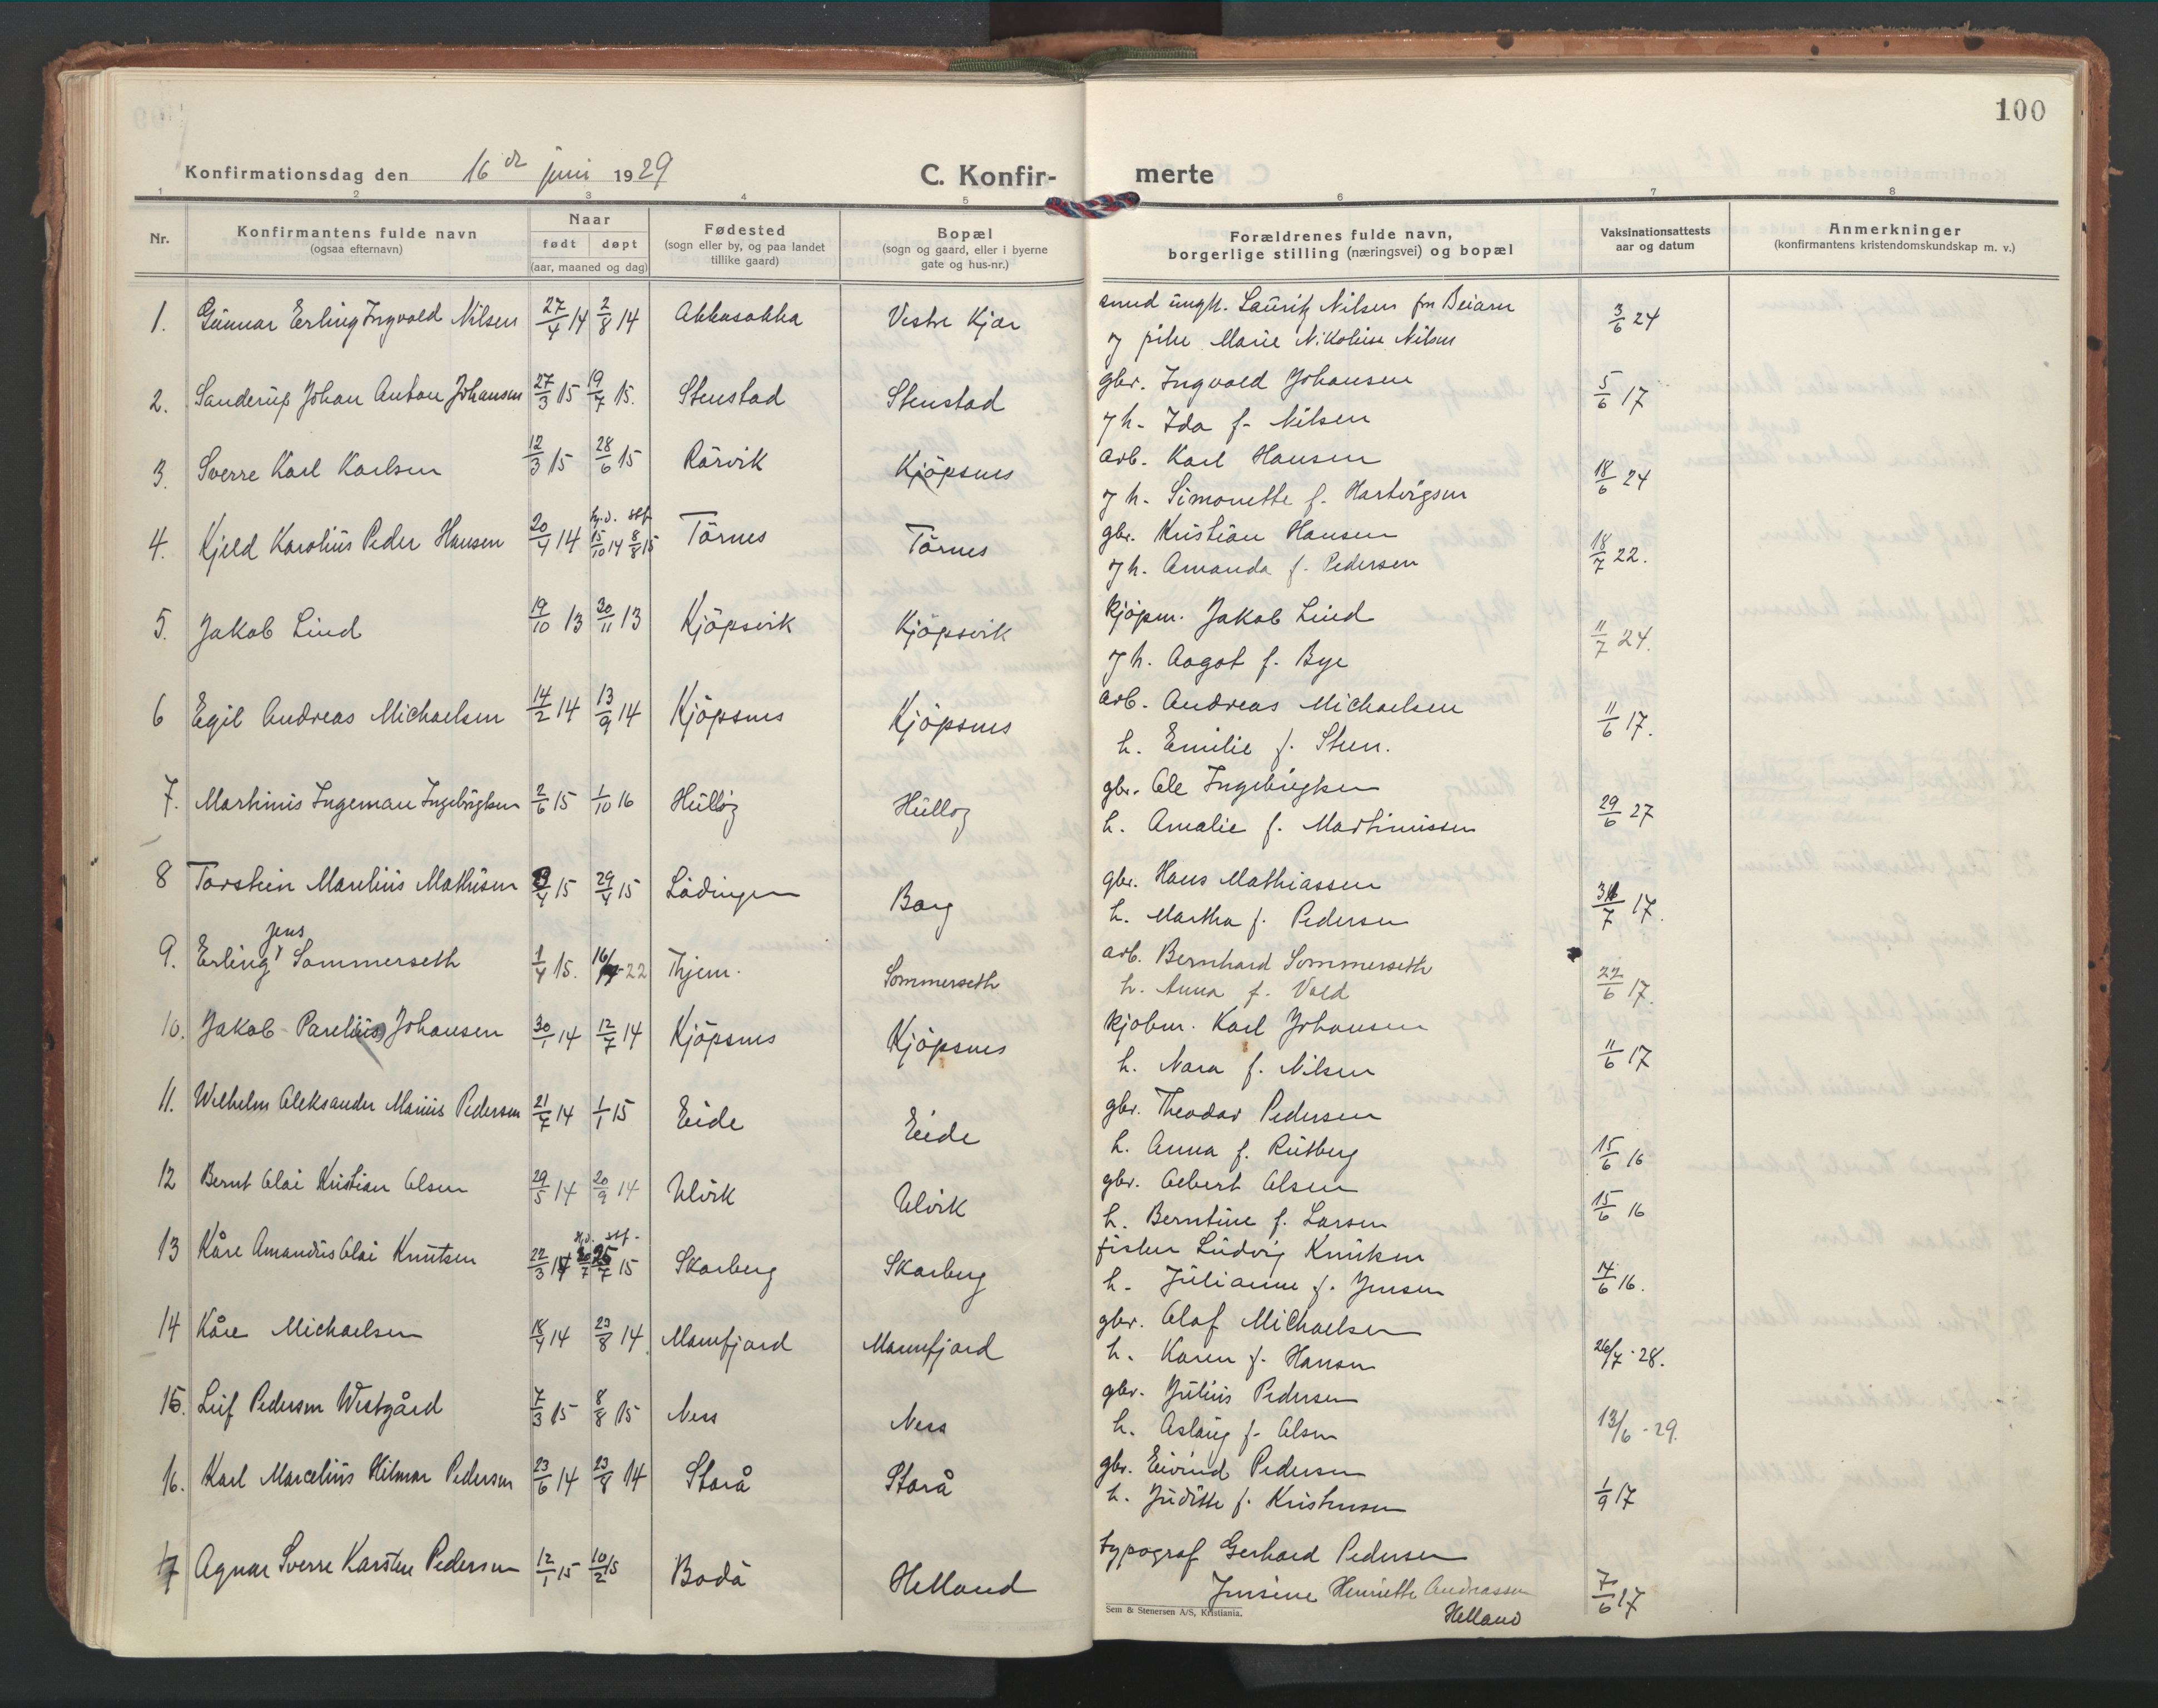 100
Konfirmationsdag den 16 de juni 1929
C. Konfir- merte
1 2 3 4 5 6 7 8
Nr.
Konfirmantens fulde navn
(ogsaa efternavn)
Naar
født døpt
(aar, maaned og dag)
Fødested
(sogn eller by, og paa landet
tillike gaard)
Bopæl
(sogn og gaard, eller i byerne
gate og hus-nr.)
Forældrenes fulde navn,
borgerlige stilling (næringsvei) og bopæl
Vaksinationsattests
aar og datum
Anmerkninger
(konfirmantens kristendomskundskap m. v.)
1. Gunnar Erling Ingvald Nilsen 27/4 14 2/8 14 Akkasakka Vestre Kjær smed ungk. Lauritz Nilsen fra Beiarn 3/6 24
og pike Marie Nikoline Nilsen
2. Sanderup Johan Anton Johansen 27/3 15 19/7 15. Stenstad Stenstad gbr. Ingvald Johansen 5/6 17
og h. Ida f. Nilsen
3. Sverre Karl Karlsen 12/3 15 28/6 15 Rørvik Kjöpsnes arb. Karl Hansen 18/6 24
og h. Simonette f. Hartvigsen
4. Kjeld Karolius Peder Hansen 20/4 14 hj.d. 15/10 14 stf 8/8 15 Törnes Törnes gbr. Kristian Hansen 18/7 22.
og h. Amanda f. Pedersen
5. Jakob Lind 19/10 13 30/11 13 Kjöpsvik Kjöpsvik kjöpm. Jakob Lind 11/7 24.
og h. Aagot f. Bye
6 Egil Andreas Michaelsen 14/2 14 13/9 14 Kjöpsnes Kjöpsnes arb. Andreas Michaelsen 11/6 17.
h. Emilie f. Steen.
7. Martinus Ingeman Ingebrigtsen 2/6 15 1/10 16 Hulløy Hulløy gbr. Ole Ingebrigtsen 29/6 27
h. Amalie f. Martinussen
8 Torstein Marelius Mathisen /4 15 29/4 15 Lödingen Barg gbr. Hans Mathiassen /7 17.
h. Martha f. Pedersen
9. Erling Jens Sommerseth 1/4 15. 16/ -22 Thjem. Sommerseth arb. Bernhard Sommerseth 22/6 17.
h. Anna f. Vold
10. Jakob Parelius Johansen 30/1 14 12/7 14 Kjöpsnes Kjöpsnes kjøbm. Karl Johansen 11/6 17
h. Nara f. Nilsen
11. Wilhelm Aleksander Marius Pedersen 21/7 14 1/1 15 Eide Eide gbr. Theodor Pedersen 15/6 16
h. Anna f. Rutberg
12 Bernt Olai Kristian Olsen 29/5 14 20/9 14 Ulvik Ulvik gbr. Albert Olsen 15/6 16
h. Berntine f. Larsen
13 Kåre Amandus Olai Knutsen 22/3 14 hj.d. stf. 25/7 15 Skarberg Skarberg fisker Ludvig Knutsen 14/6 16.
h. Julianne f. Jensen
14 Kåre Michaelsen 18/4 14 23/8 14. Mannfjord Mannfjord gbr. Olaf Michaelsen 26/7-28.
h. Karen f. Hansen
15. Leif Pedersen Westgård 7/3 15 8/8 15 Ness Ness gbr. Julius Pedersen 13/6-29.
h. Aslaug f. Olsen
16. Karl Marcelius Hilmar Pedersen 23/6 14 23/8 14 Storå Storå gbr. Eivind Pedersen 1/9 17
h. Juditte f. Kristensen
17 Agnar Sverre Karsten Pedersen 12/1 15 10/2 15 Bodö Helland typograf Gerhard Pedersen 7/6 17
Jensine Henriette Andreassen
Helland
Sem & Stenersen A/S, Kristiania.